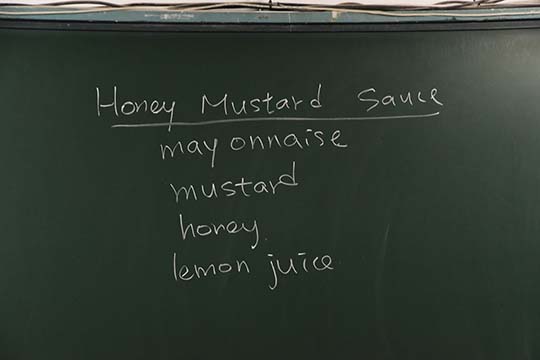 Honey Mustard Sauce
mayonnaise
mustard
honey.
lemon juice